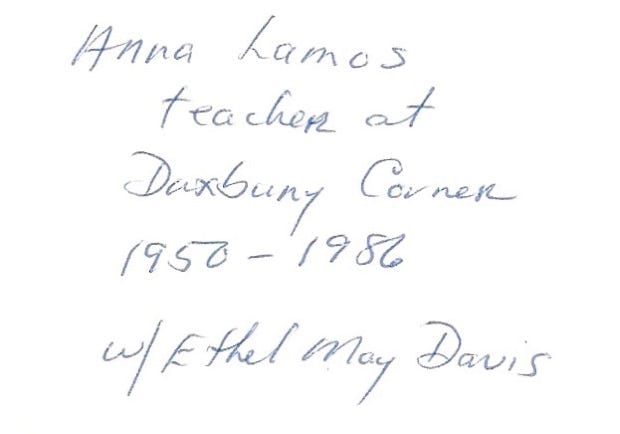 Anna Lamos
teacher at
Duxbury Corner
1950 - 1986
w/ Ethel May Davis